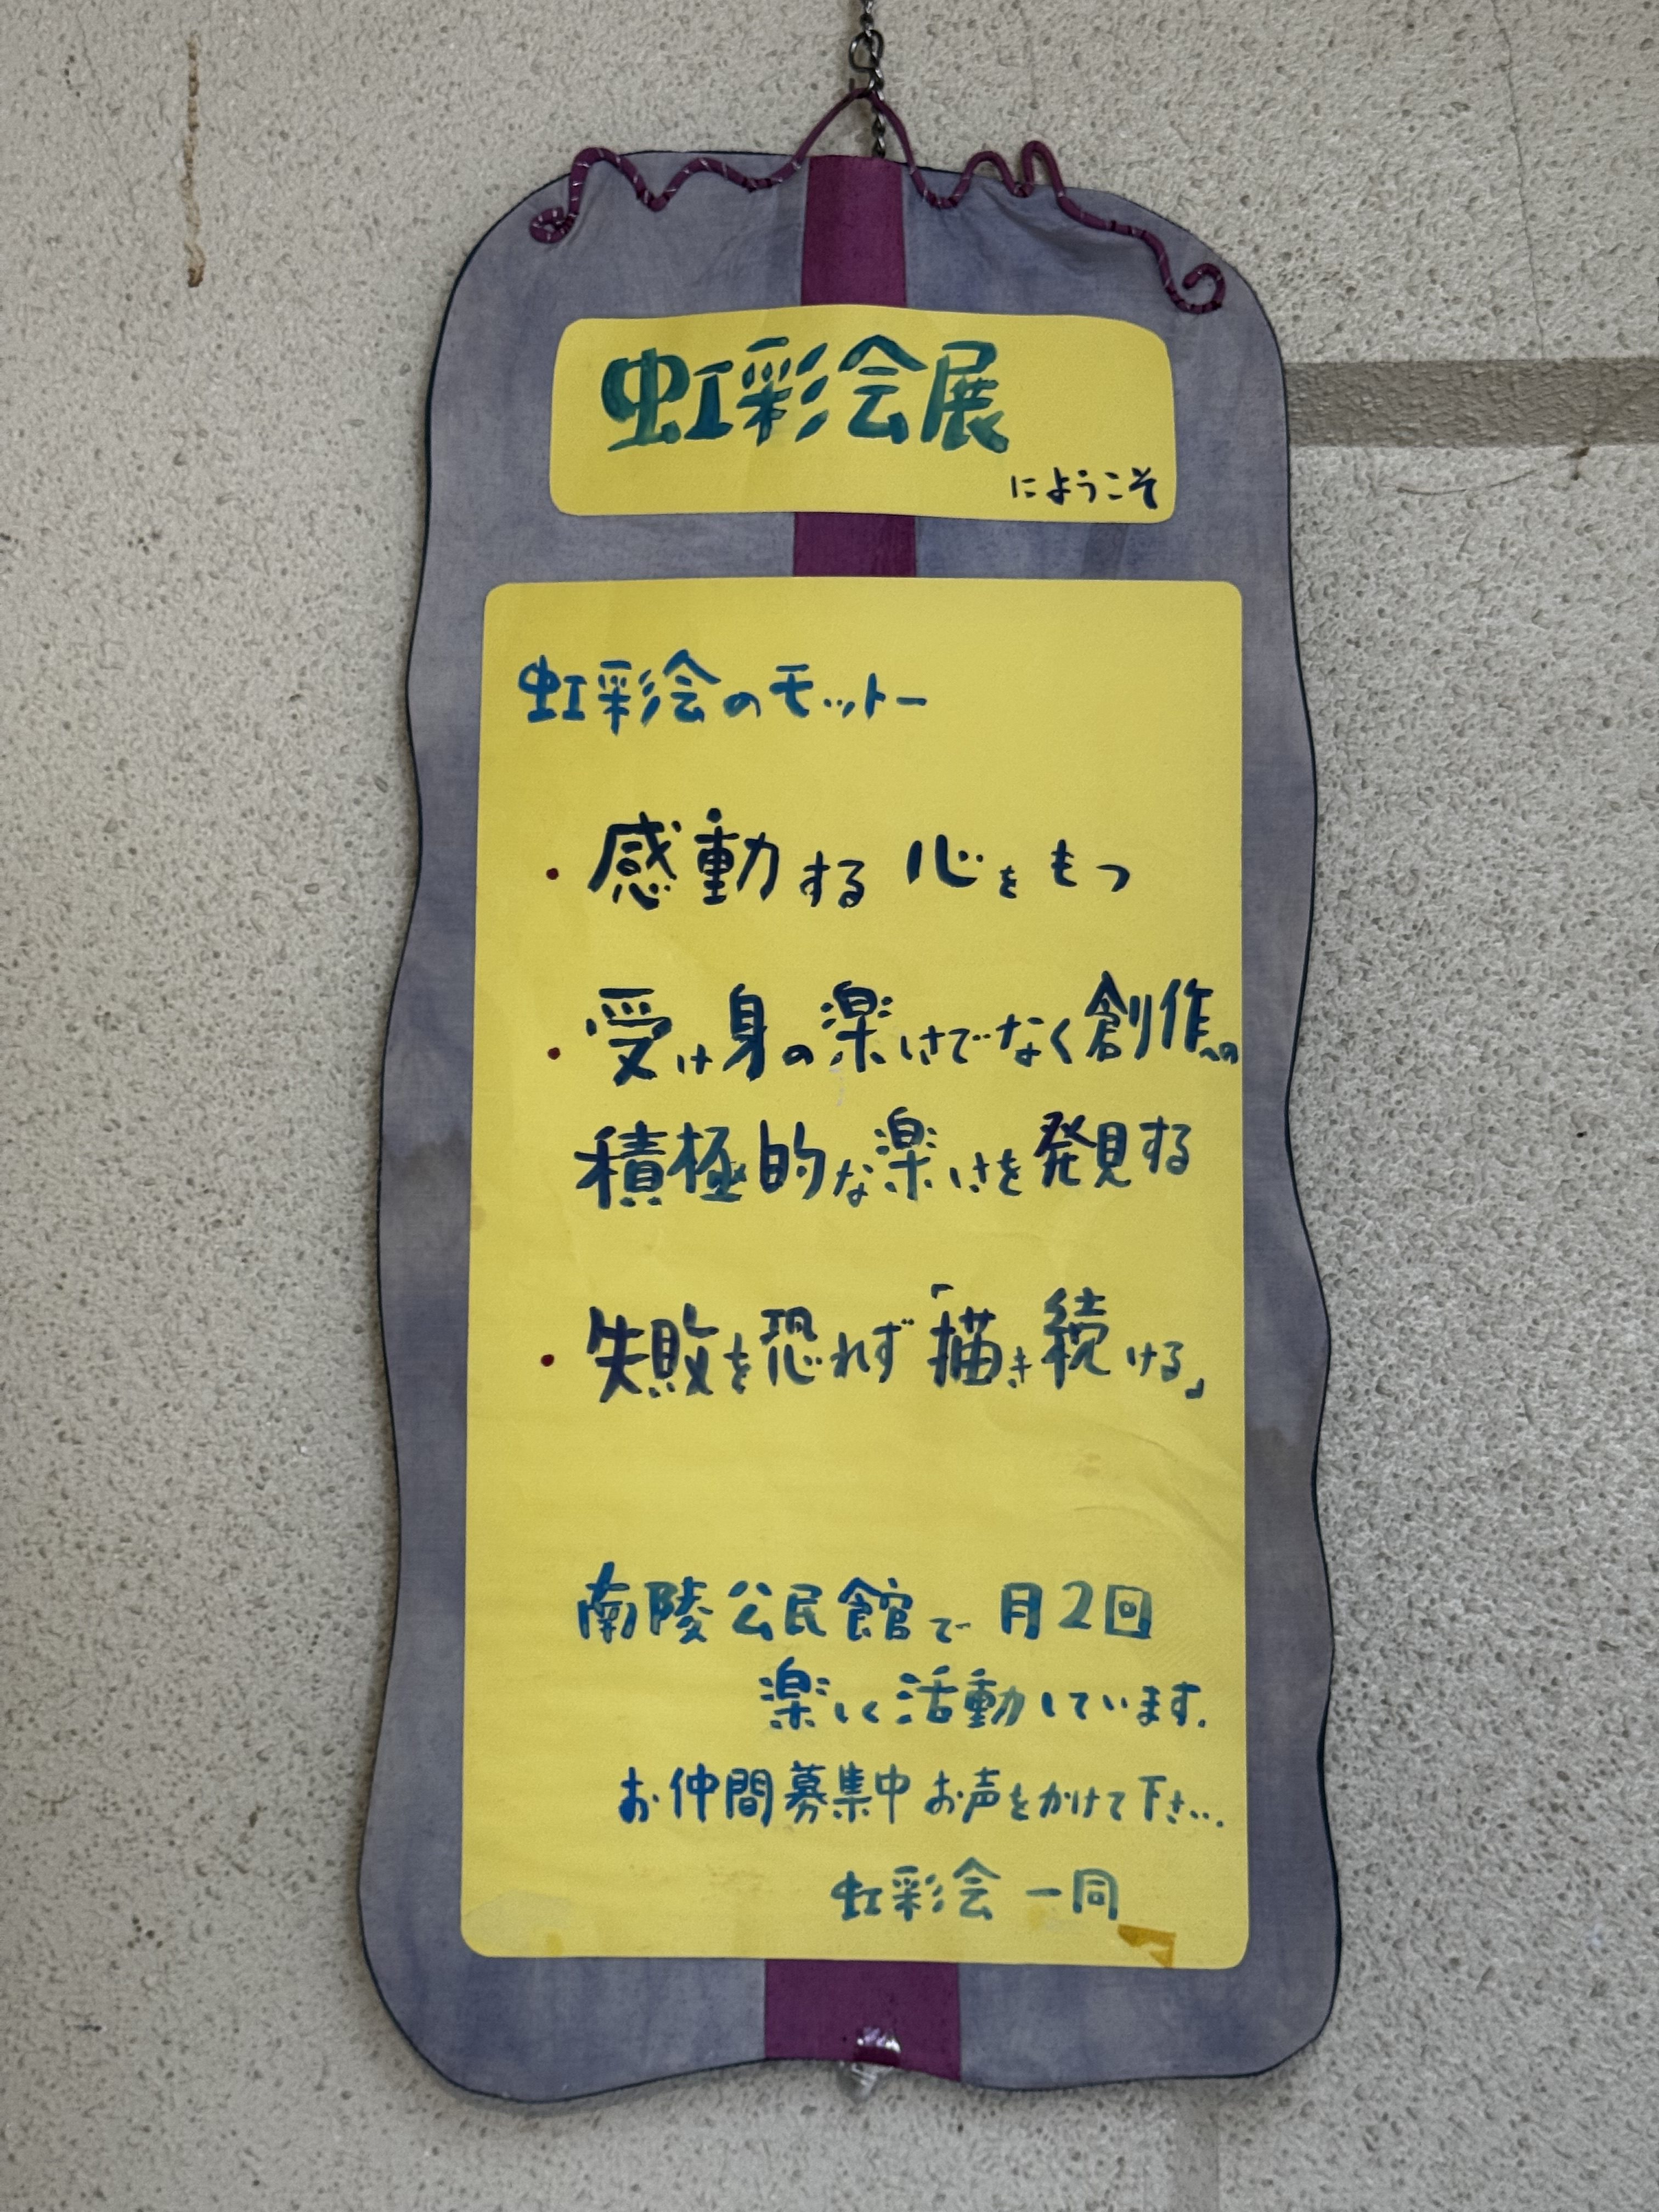 虹彩会展
にようこそ
虹彩会のモットー
・感動する心をもつ
・受け身の楽しさでなく創作への
積極的な楽しさを発見する
・失敗を恐れず「描き続ける」
南陵公民館で月2回
楽しく活動しています.
お仲間募集中お声をかけて下さい.
虹彩会一同